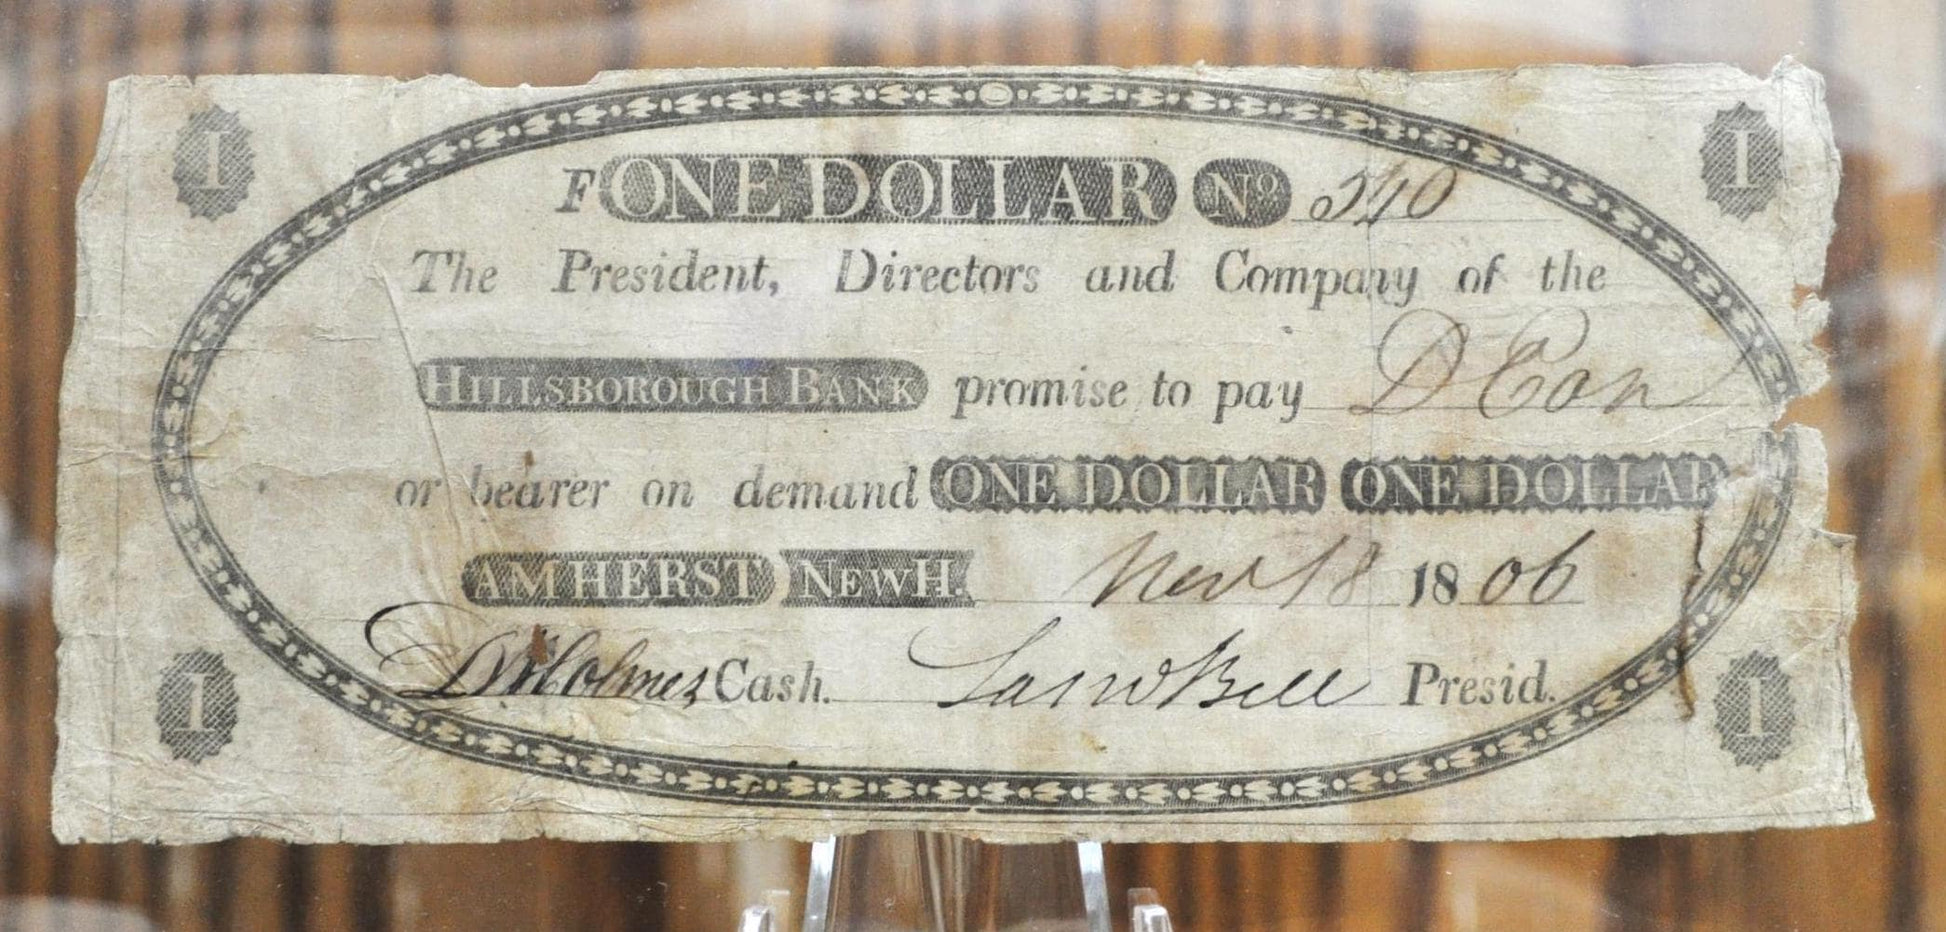 1 1
F ONE DOLLAR No 540
The President, Directors and Company of the
HILLSBOROUGH BANK promise to pay D Con
or bearer on demand ONE DOLLAR ONE DOLLAR
AMHERST NEWH. Nov 18 1806
D Holmes Cash. Saml Bell Presid.
1 1